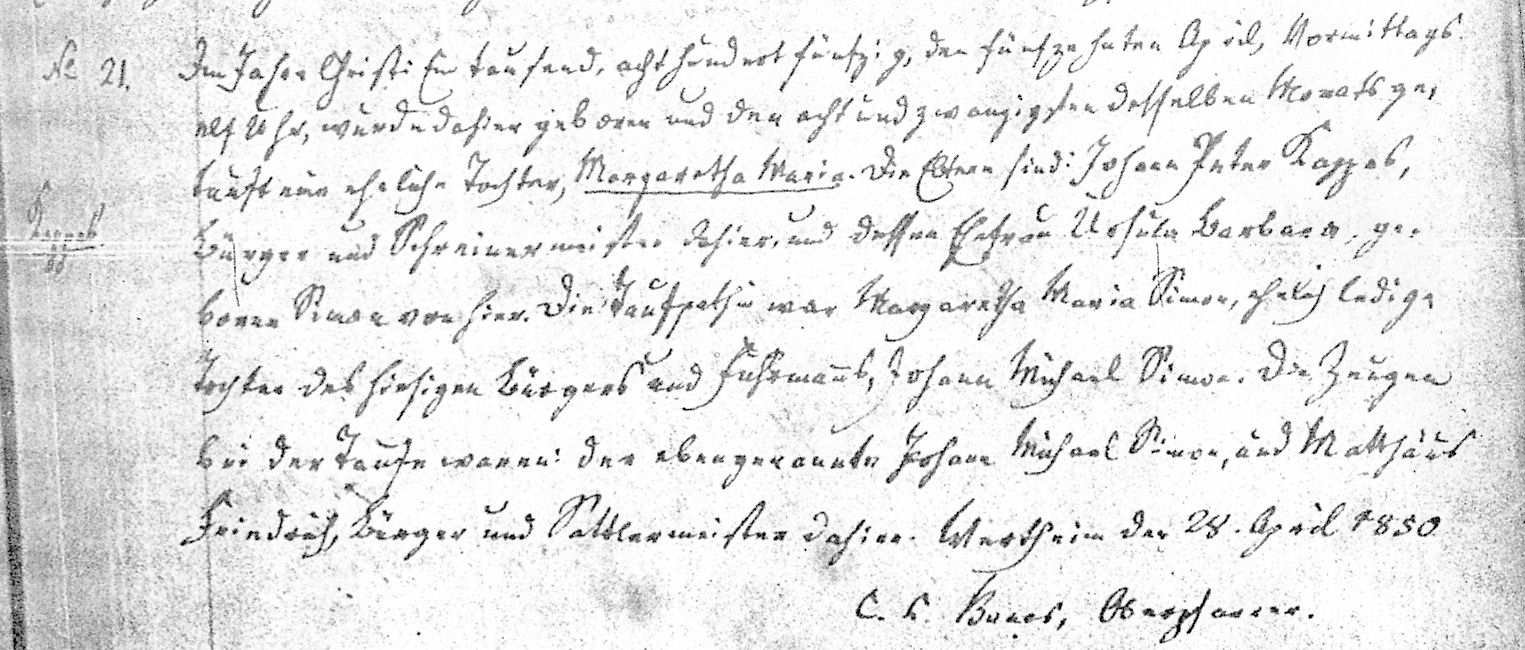 No 21.
Im Jahre Christi Ein tausend, acht hundert fünfzig, den fünfzehnten April, Vormittags
elf Uhr, wurde dahier geboren und den acht und zwanzigsten desselben Monats ge-
tauft eine eheliche Tochter, Margaretha Maria. Die Eltern sind: Johann Peter Kappes,
Kappes
Bürger und Schreinermeister dahier, und dessen Ehefrau Ursula Barbara, ge-
borne Simon von hier. Die Taufpathin war Margaretha Maria Simon, ehelich ledige
Tochter des hiesigen Bürgers und Fuhrmanns, Johann Michael Simon. Die Zeugen
bei der Taufe waren: der ebengenannte Johann Michael Simon, und Matthäus
Friedrich, Bürger und Sattlermeister dahier. Wertheim den 28. April 1850
C. Oberpfarrer.